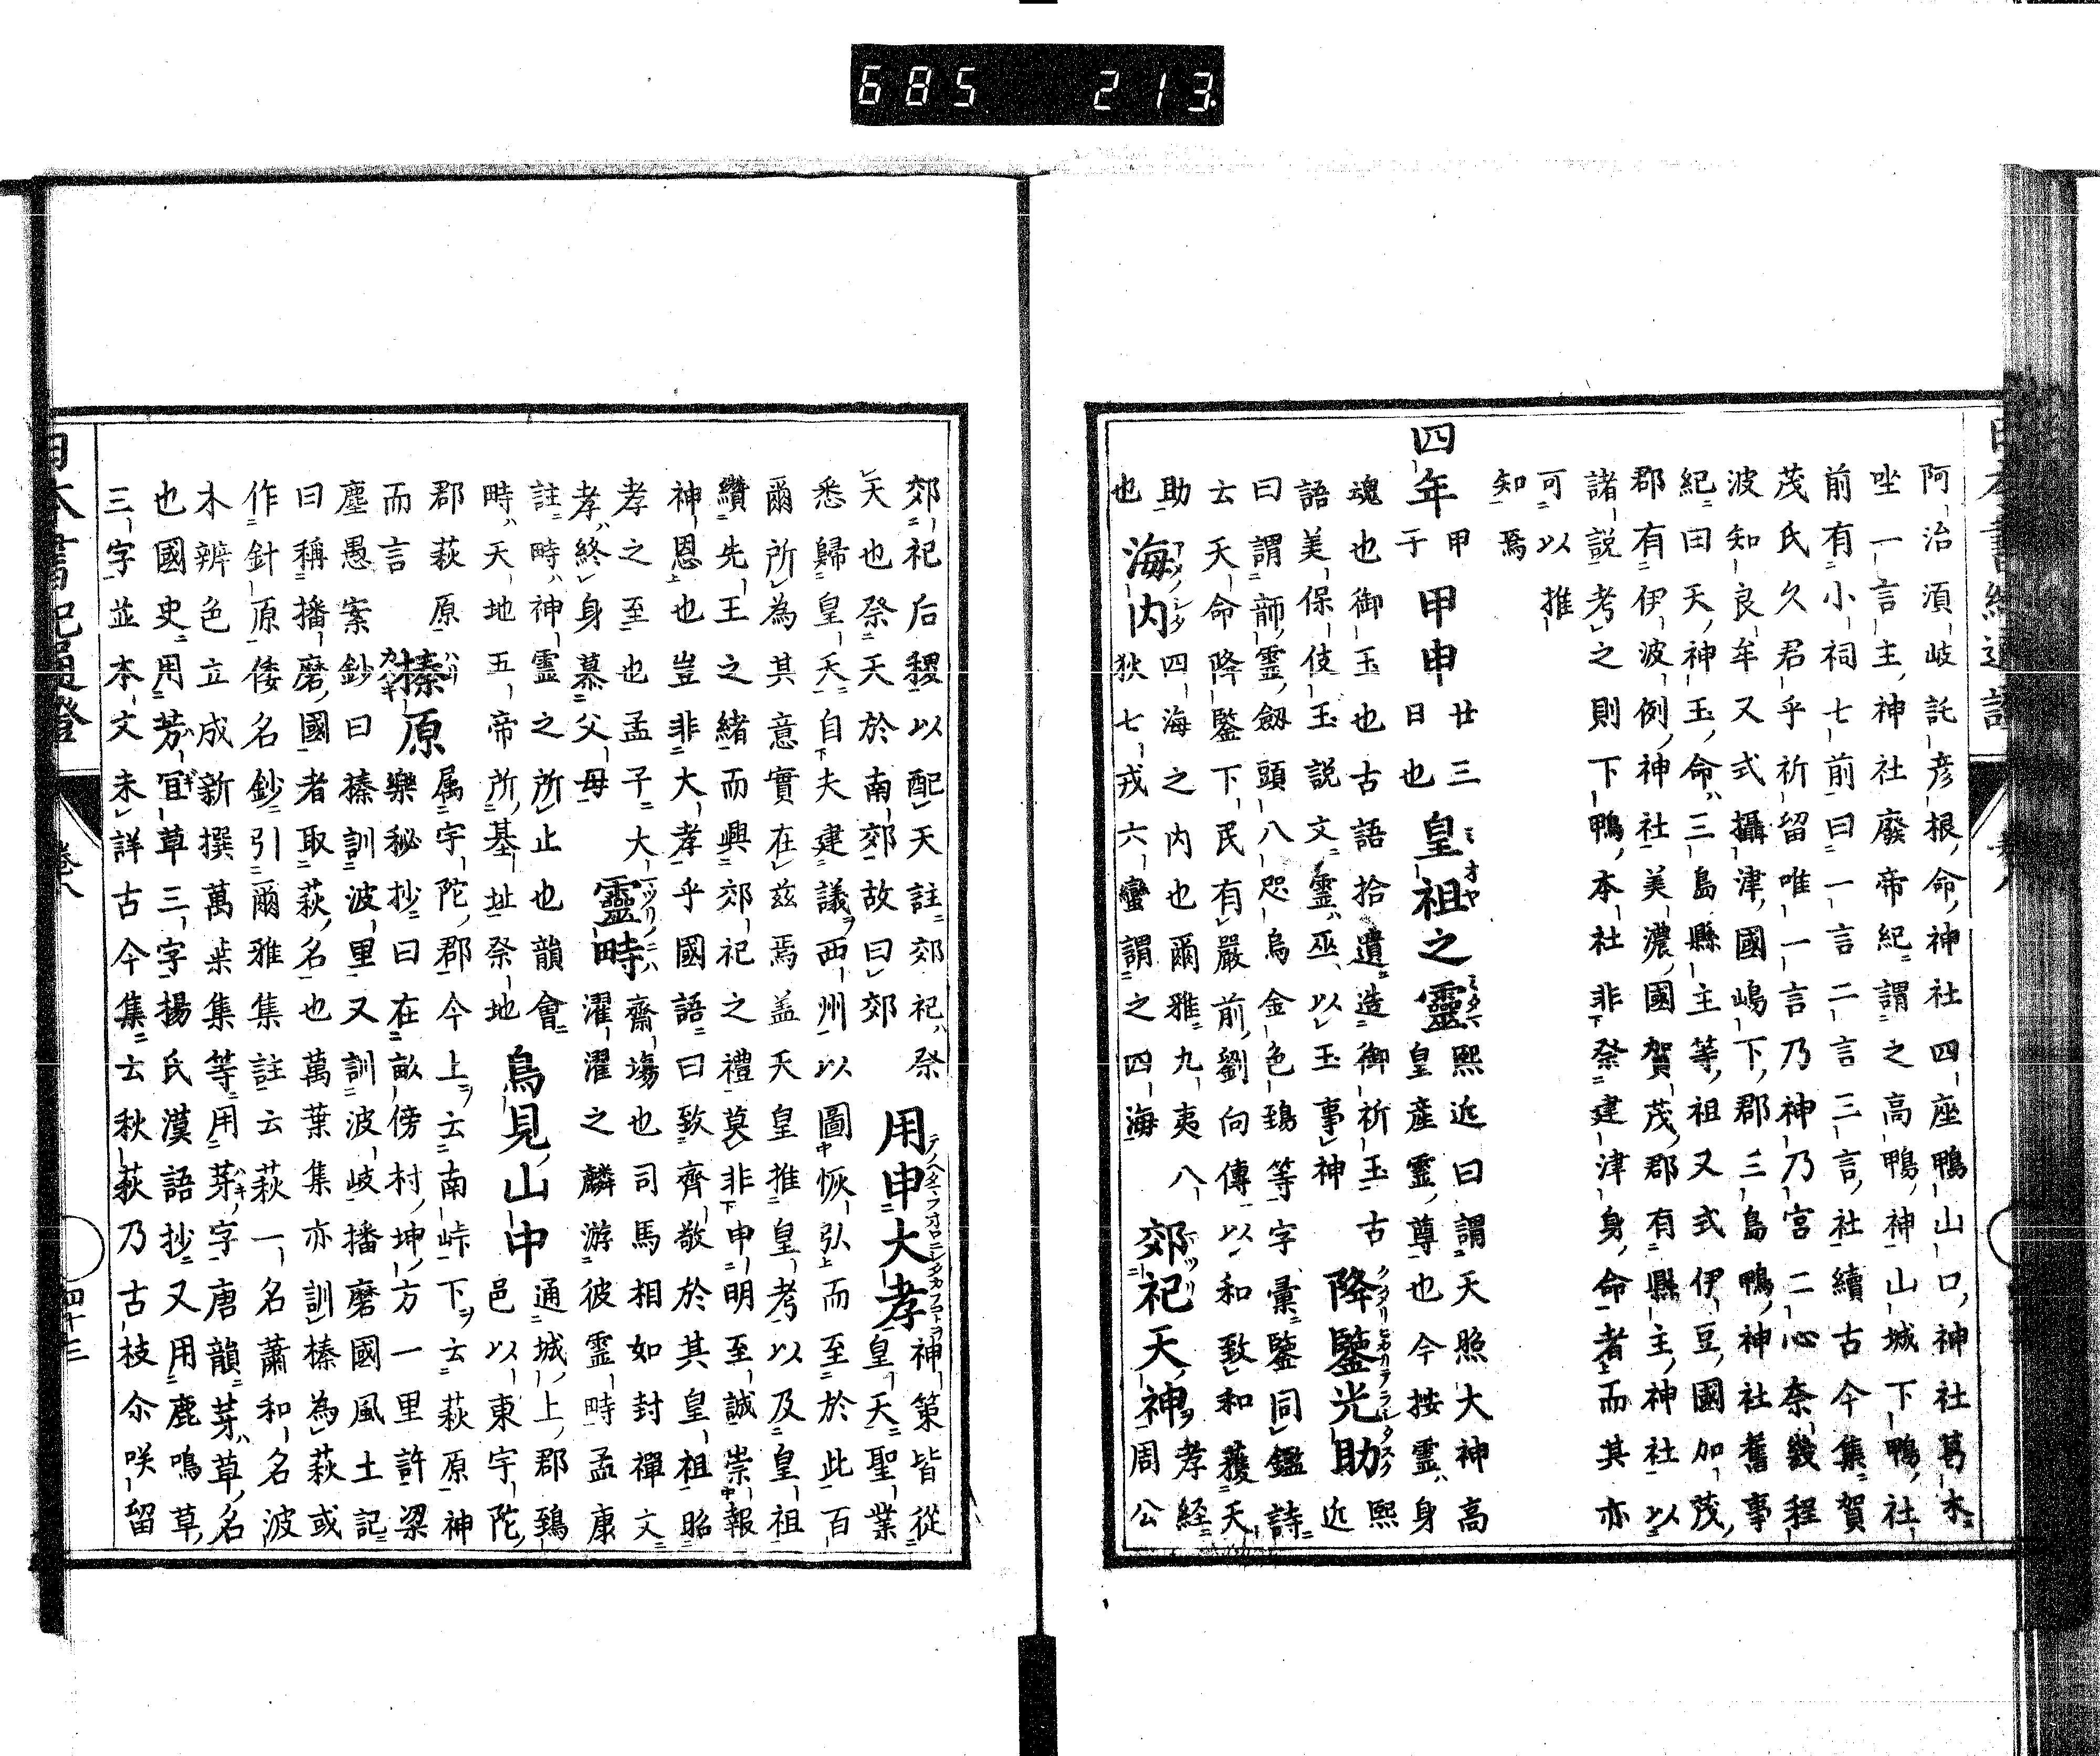 685 213
阿治湏岐託彦根命神社四座鴨山口神社葛木
坐一言主神社廢帝紀謂之高鴨神山城下鴨社
前有小祠七前曰一言二言三言社續古今集賀
茂氏久君乎祈留唯一言乃神乃宮二心奈幾程
波知良牟又式攝津國嶋下郡三島鴨神社舊事
紀曰天神玉命三島縣主等祖又式伊豆國加茂
郡有伊波例神社美濃國賀茂郡有縣主神社以
諸說考之則下鴨本社非祭建津身命者而其亦
可以推
知焉
四年
甲
于
甲申
廿三
日也
皇祖之靈
熙近曰謂天照大神高
皇產靈尊也今按靈身
魂也御玉也古語拾遺造御祈玉古
語美保伎玉說文靈巫以玉事神
降鑒光助
熙
近
曰謂韴靈劔頭八咫烏金色鵄等字彙鑒同鑑詩
云天命降鑒下民有嚴前劉向傳以和致和獲天
助
也
海内
四海之内也爾雅九夷八
狄七戎六蠻謂之四海
郊祀天神
孝経
周公
郊祀后稷以配天註郊祀祭
天也祭天於南郊故曰郊
用申大孝
神策皆從
皇天聖業
悉歸皇天自夫建議西州以圖恢弘而至於此百
爾所為其意實在茲焉盖天皇推皇考以及皇祖
纘先王之緒而興郊祀之禮莫非申明至誠崇報
神恩也豈非大孝乎國語曰致齊敬於其皇祖昭
孝之至也孟子大
孝終身慕父母
靈畤
齋場也司馬相如封禪文
濯濯之麟游彼靈畤孟康
註畤神靈之所止也韻會
畤天地五帝所基址祭地
鳥見山中
通城上郡鵄
邑以東宇陀
郡萩原
而言
榛原
属宇陀郡今上云南峠下云萩原神
樂秘抄曰在畝傍村坤方一里許梁
塵愚案鈔曰榛訓波里又訓波岐播磨國風土記
曰稱播磨國者取萩名也萬葉集亦訓榛為萩或
作針原倭名鈔引爾雅集註云萩一名蕭和名波
木辨色立成新撰萬葉集等用芽字唐韻芽草名
也國史用芳宜草三字揚氏漢語抄又用鹿鳴草
三字並本文未詳古今集云秋萩乃古枝尒咲留
日本書紀通證
巻八
四十三